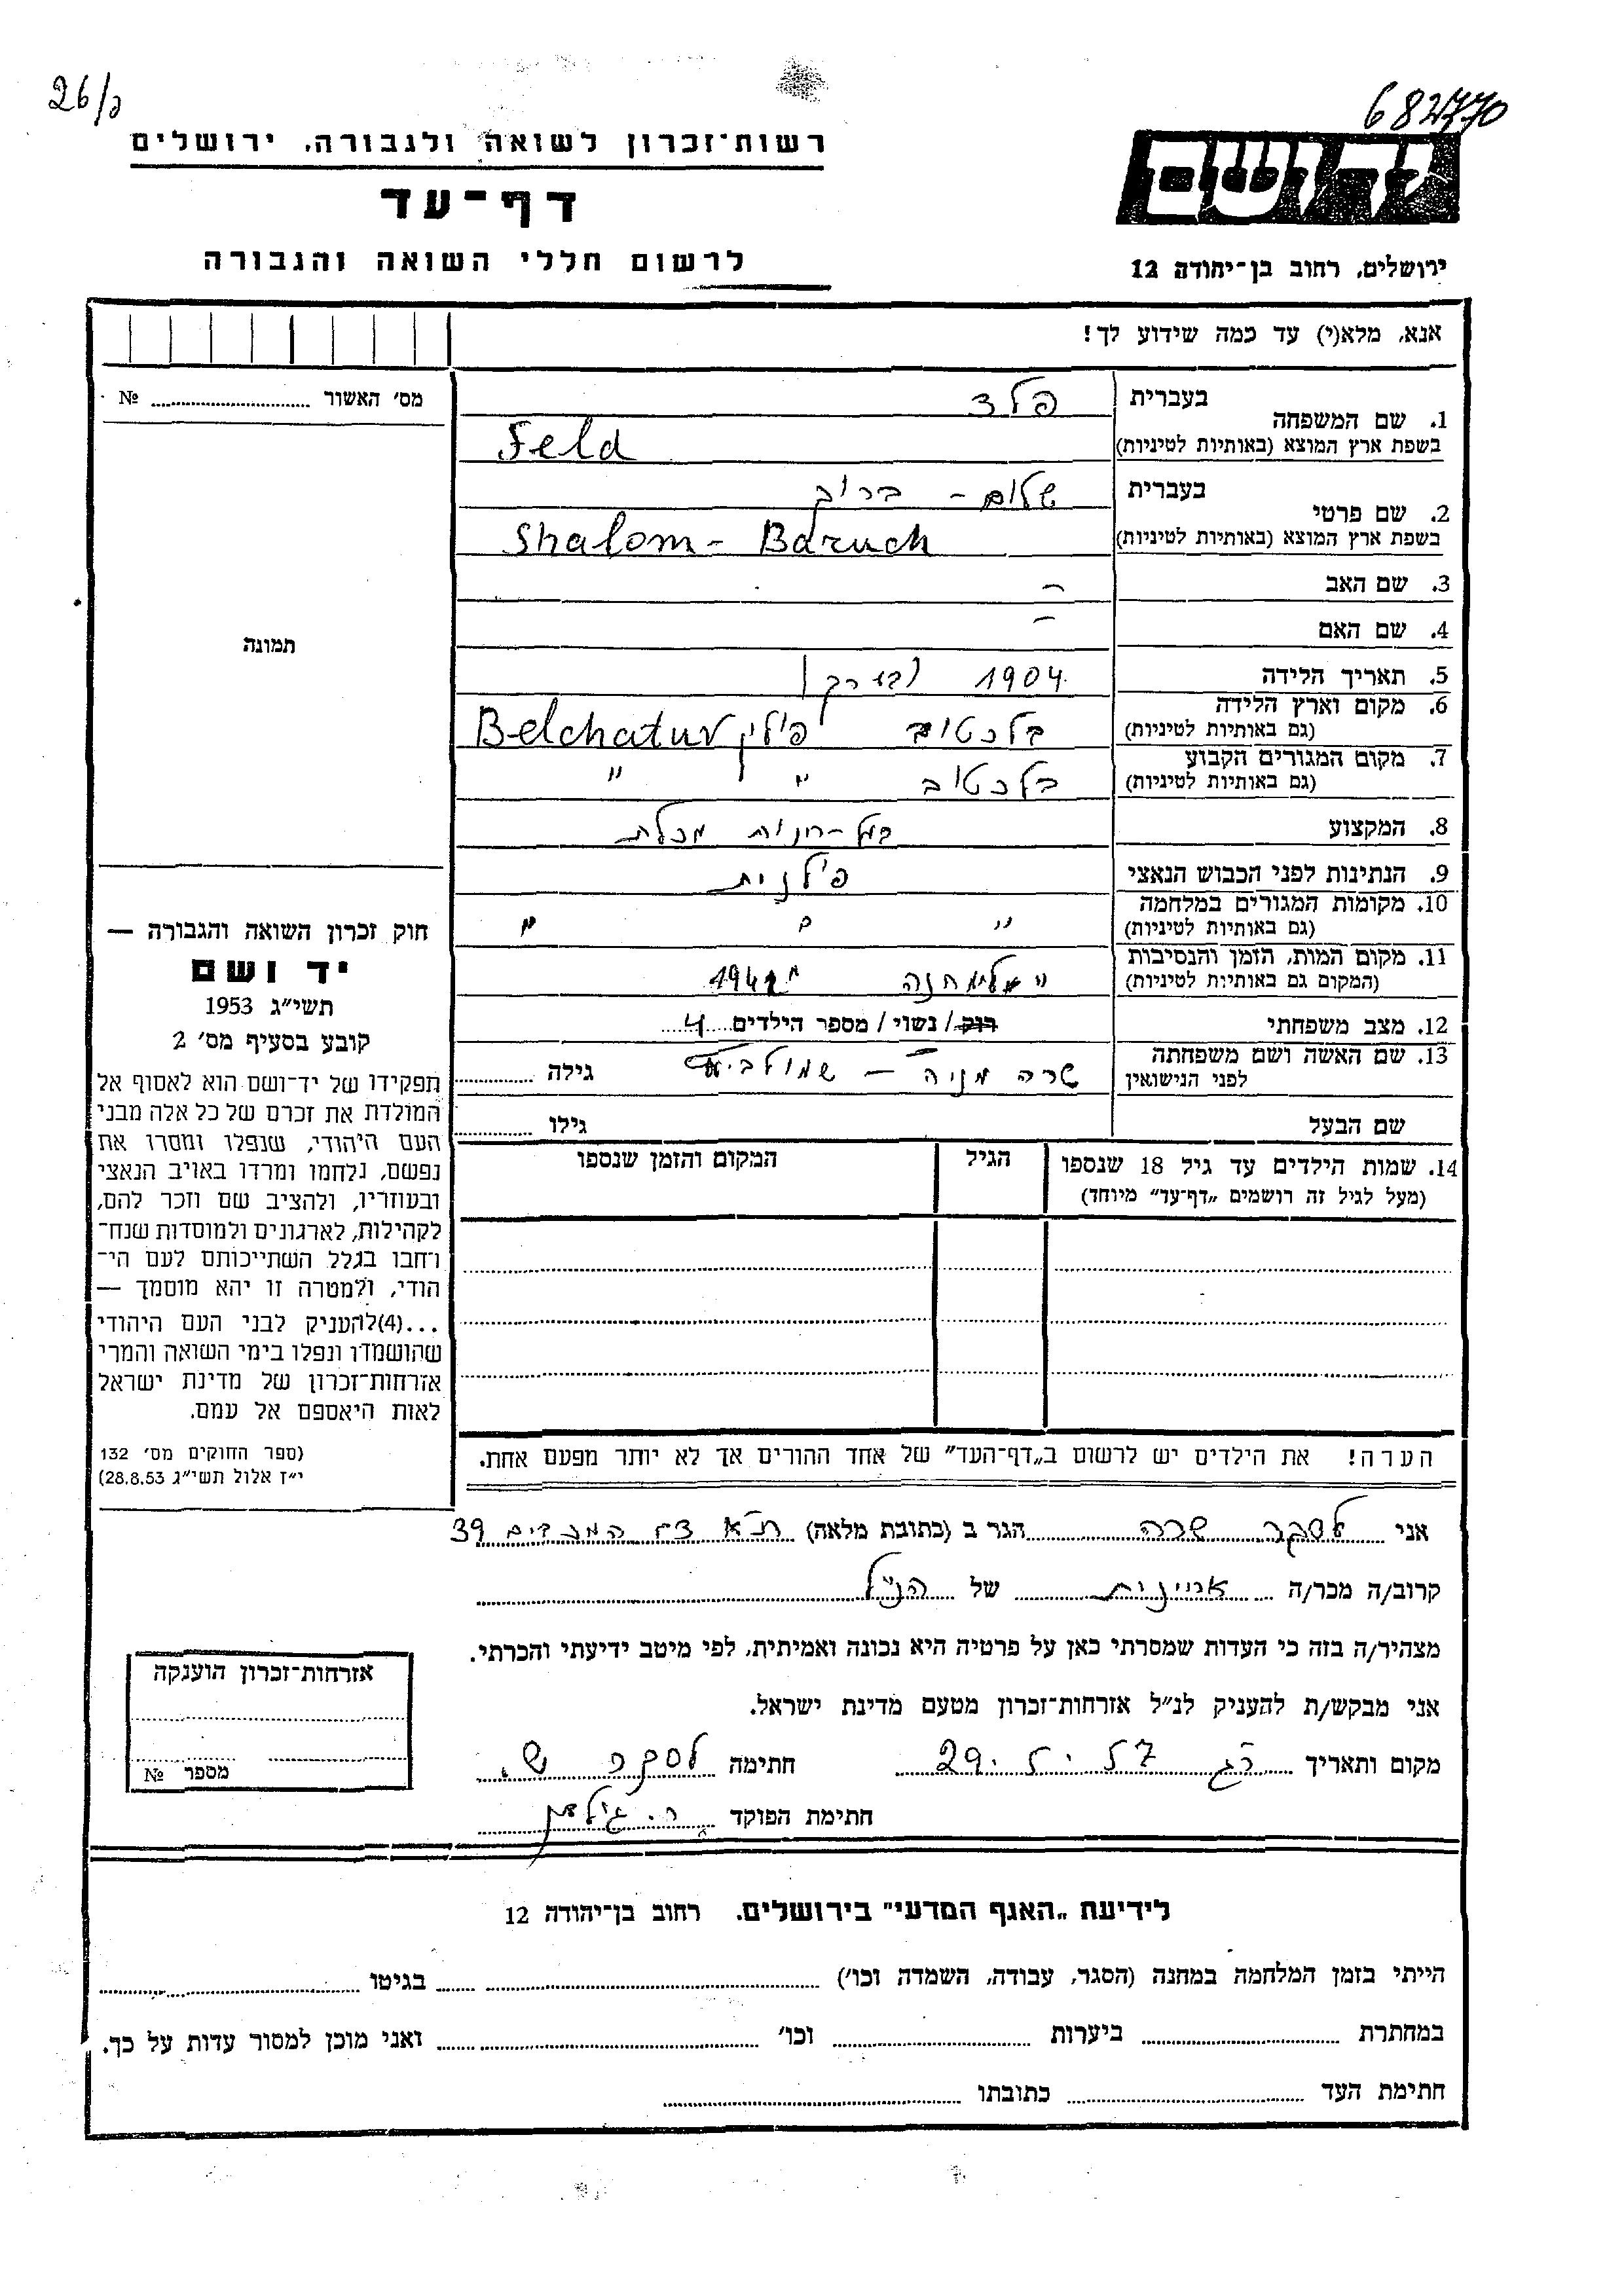 26/פ
682770
רשות־זכרון לשואה ולגבורה, ירושלים
דף־עד
לרשום חללי השואה והגבורה
יד ושם
ירושלים, רחוב בן־יהודה 12
אנא, מלא(י) עד כמה שידוע לך!
מס׳ האשור № 
תמונה
חוק זכרון השואה והגבורה —
יד ושם
תשי״ג 1953
קובע בסעיף מס׳ 2
תפקידו של יד־ושם הוא לאסוף אל
המולדת את זכרם של כל אלה מבני
העם היהודי, שנפלו ומסרו את
נפשם, נלחמו ומרדו באויב הנאצי
ובעוזריו, ולהציב שם וזכר להם,
לקהילות, לארגונים ולמוסדות שנח־
רחבו בגלל השתייכותם לעם הי־
הודי, ולמטרה זו יהא מוסמך —
...(4)להעניק לבני העם היהודי
שהושמדו ונפלו בימי השואה והמרי
אזרחות־זכרון של מדינת ישראל
לאות היאספם אל עמם.
(ספר החוקים מס׳ 132
י״ז אלול תשי״ג 28.8.53)
1. שם המשפחה
בעברית פלד
בשפת ארץ המוצא (באותיות לטיניות) Feld
2. שם פרטי
בעברית שלום - ברוך
בשפת ארץ המוצא (באותיות לטיניות) Shalom - Baruch
3. שם האב –
4. שם האם –
5. תאריך הלידה 1904 (בערך)
6. מקום וארץ הלידה
(גם באותיות לטיניות) בלכטוב פולין Belchatuv
7. מקום המגורים הקבוע
(גם באותיות לטיניות) בלכטוב " "
8. המקצוע בעל-חנות מכלת
9. הנתינות לפני הכבוש הנאצי פולנית
10. מקומות המגורים במלחמה
(גם באותיות לטיניות)
11. מקום המות, הזמן והנסיבות
(המקום גם באותיות לטיניות)
12. מצב משפחתי רווק / נשוי / מספר הילדים 4
13. שם האשה ושם משפחתה
לפני הנישואין שרה מניה – גילה
שם הבעל גילו
14. שמות הילדים עד גיל 18 שנספו
(מעל לגיל זה רושמים „דף־עד״ מיוחד)
הגיל
המקום והזמן שנספו
הערה! את הילדים יש לרשום ב„דף־העד״ של אחד ההורים אך לא יותר מפעם אחת.
אני לסקר שרה הגר ב (כתובת מלאה) ת״א 39
קרוב/ה מכר/ה של הנ״ל
מצהיר/ה בזה כי העדות שמסרתי כאן על פרטיה היא נכונה ואמיתית, לפי מיטב ידיעתי והכרתי.
אני מבקש/ת להעניק לנ״ל אזרחות־זכרון מטעם מדינת ישראל.
מקום ותאריך חתימה לסקר ש.
חתימת הפוקד
אזרחות־זכרון הוענקה
מספר №
לידיעת „האגף המדעי״ בירושלים. רחוב בן־יהודה 12
הייתי בזמן המלחמה במחנה (הסגר, עבודה, השמדה וכו׳) בגיטו
במחתרת ביערות וכו׳ ואני מוכן למסור עדות על כך.
חתימת העד כתובתו